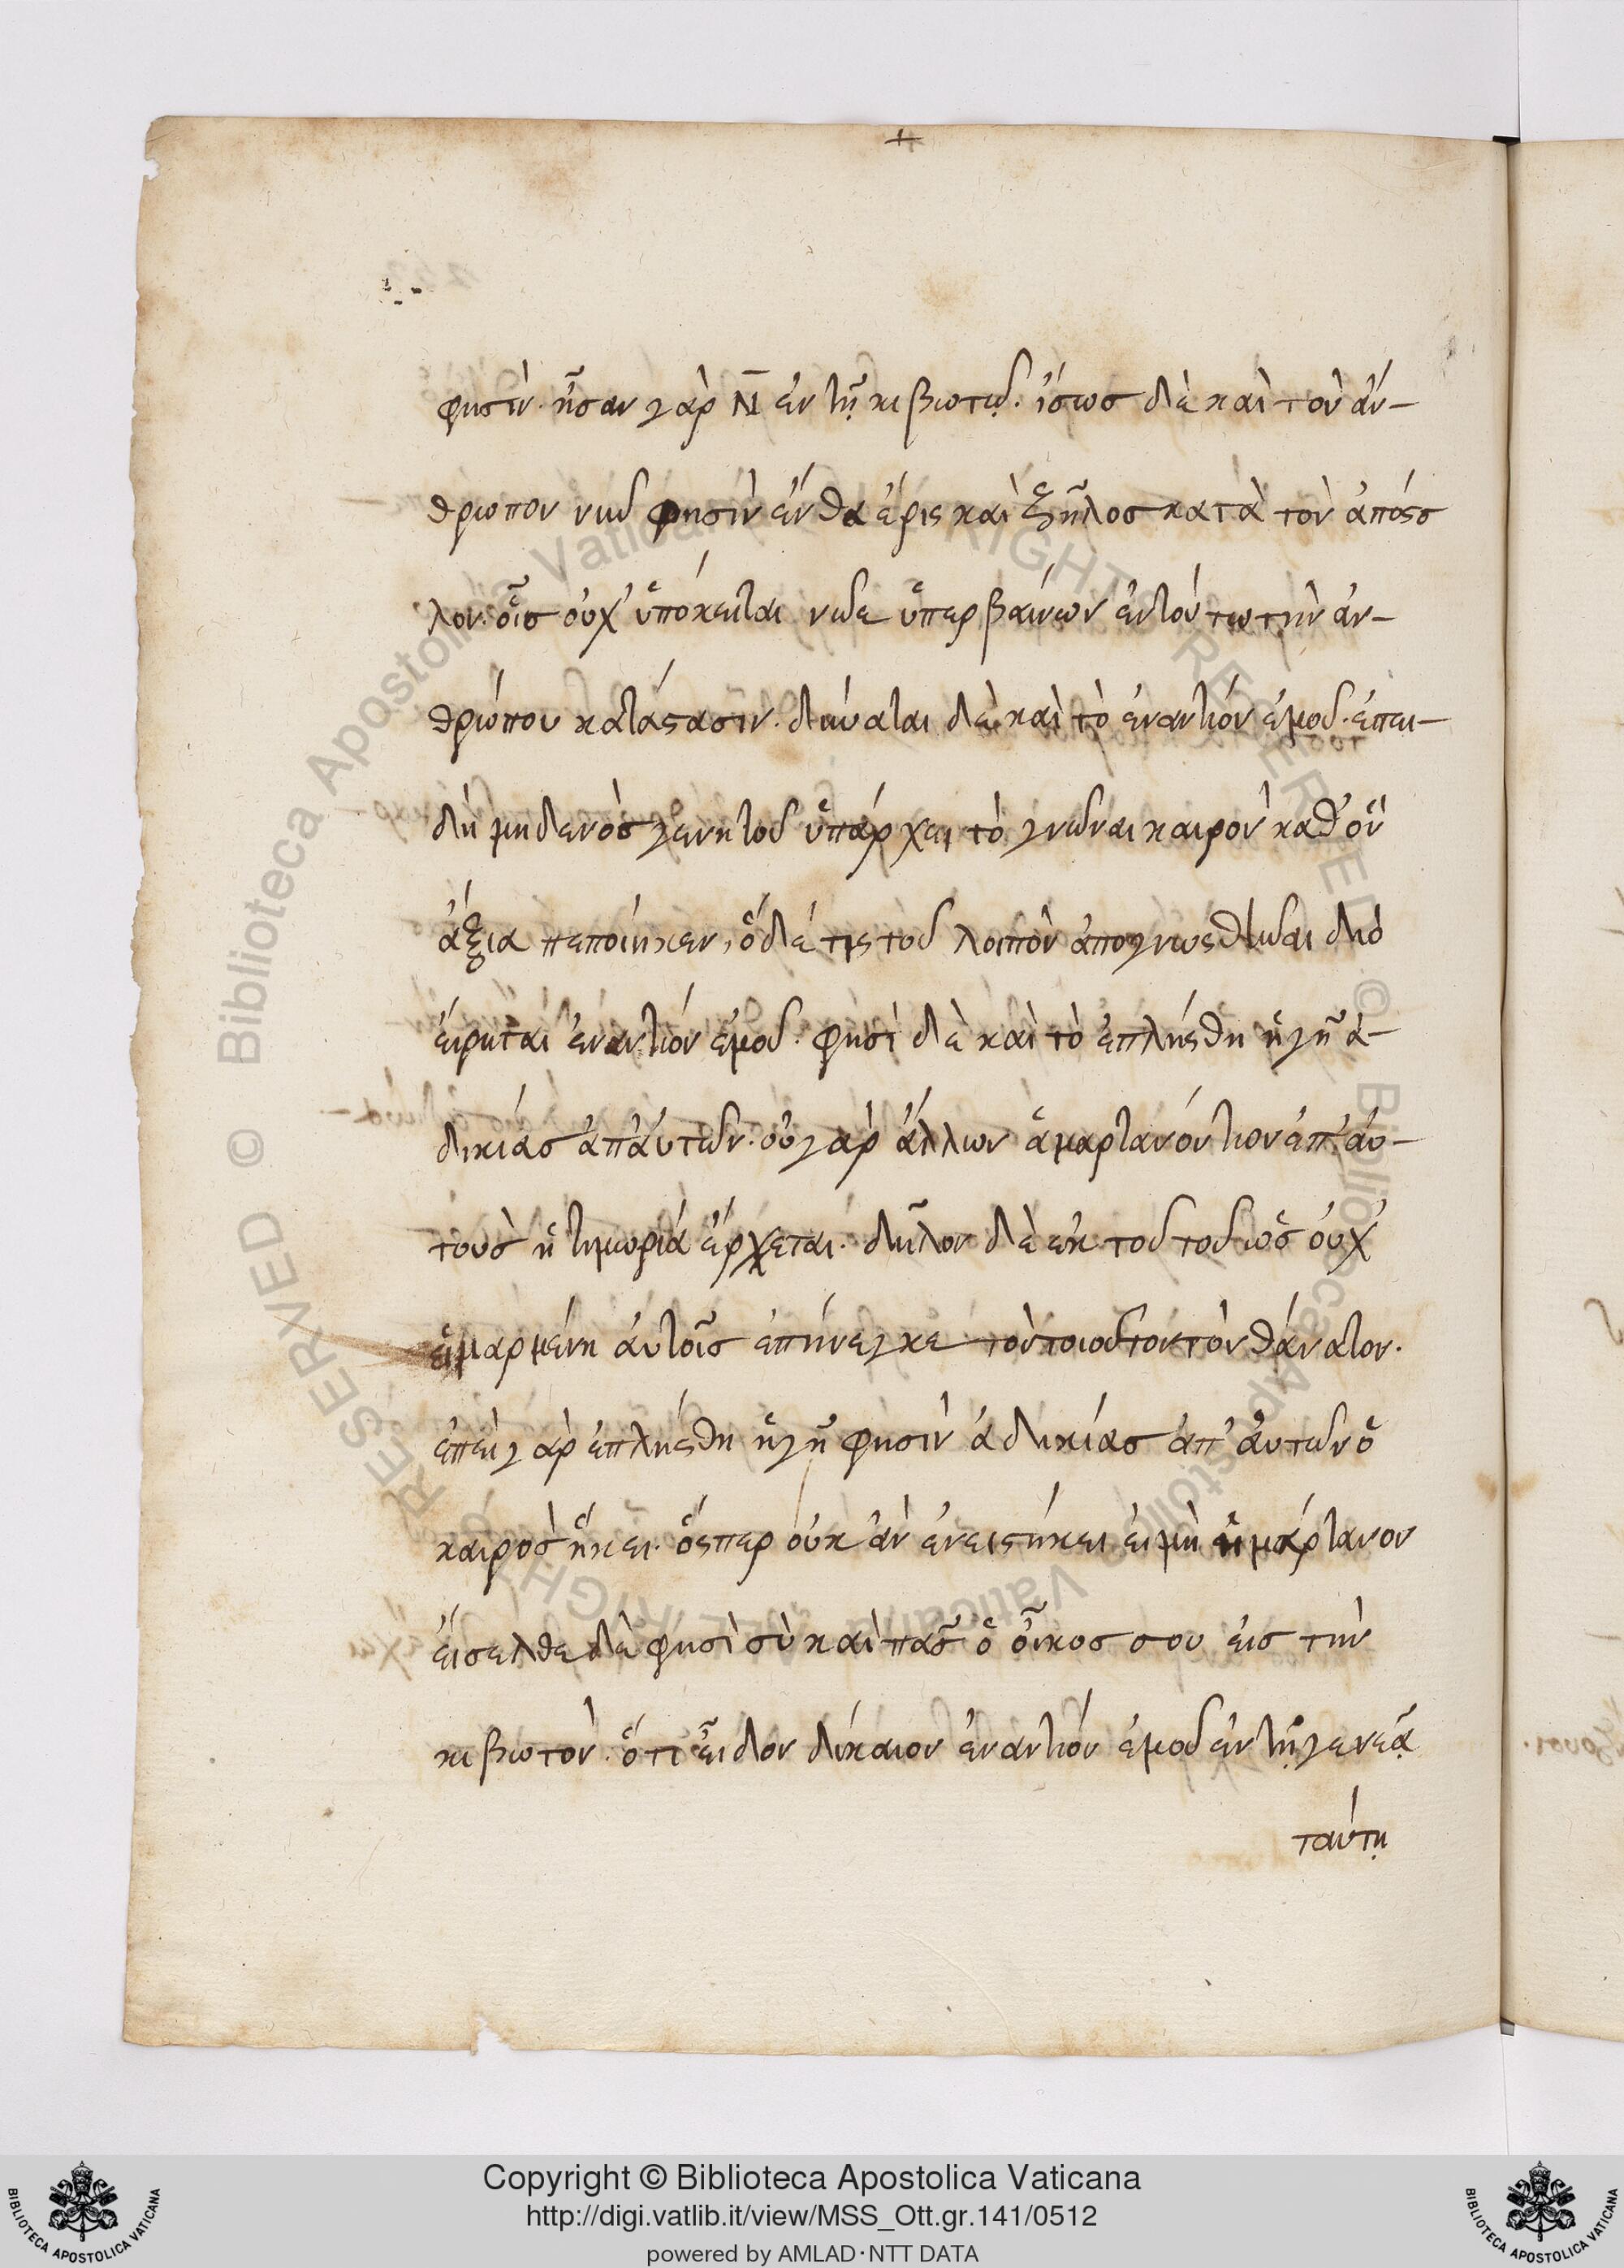 φησὶν· ἦσαν γὰρ Ν̄ ἐν τῇ κιβωτῷ· ἴσως δὲ καὶ τὸν ἄν-
θρωπον νῦν φησὶν ἔνθα ἔρις καὶ ζῆλος κατὰ τὸν ἀπόσ
λον· οἷς οὐχ' ὑπόκειται νῶε ὑπερβαίνων ἐν τούτω τὴν ἀν-
θρώπου κατάστασιν· δύναται δὲ καὶ τὸ ἐναντίον ἐμοῦ· ἐπει-
δὴ μηδενὸς γενητοῦ ὑπάρχει τὸ γνῶναι καιρὸν καθ' ὃν
ἄξια πεποίηκεν, ὁ δέ τις τοῦ λοιπὸν ἀπογνωσθῆναι διὸ
εἴρηται ἐναντίον ἐμοῦ· φησὶ δὲ καὶ τὸ ἐπλήσθη ἡ γῆ ἀ-
δικίας ἀπ' αὐτῶν· οὐ γὰρ ἄλλων ἁμαρτανόντων ἐπ' αὐ-
τοὺς ἡ τιμωρία ἔρχεται· δῆλον δὲ ἐκ τοῦ τοῦ ὡς οὐχ'
εἱμαρμένη αὐτοῖς ἐπήνεγκε τὸν τοιοῦτον τὸν θάνατον·
ἐπεὶ γὰρ ἐπλήσθη ἡ γῆ φησὶν ἀδικίας ἀπ' αὐτῶν ὁ
καιρὸς ἥκει· ὅσπερ οὐκ ἂν ἐνειστήκει εἰ μὴ ἡμάρτανον
εἴσελθε δὲ φησὶ σὺ καὶ πᾶς ὁ οἶκος σου εἰς τὴν
κιβωτὸν· ὅτι εἶδον δίκαιον ἐναντίον ἐμοῦ ἐν τῇ γενεᾷ
ταύτῃ
Copyright © Biblioteca Apostolica Vaticana
http://digi.vatlib.it/view/MSS_Ott.gr.141/0512
powered by AMLAD·NTT DATA